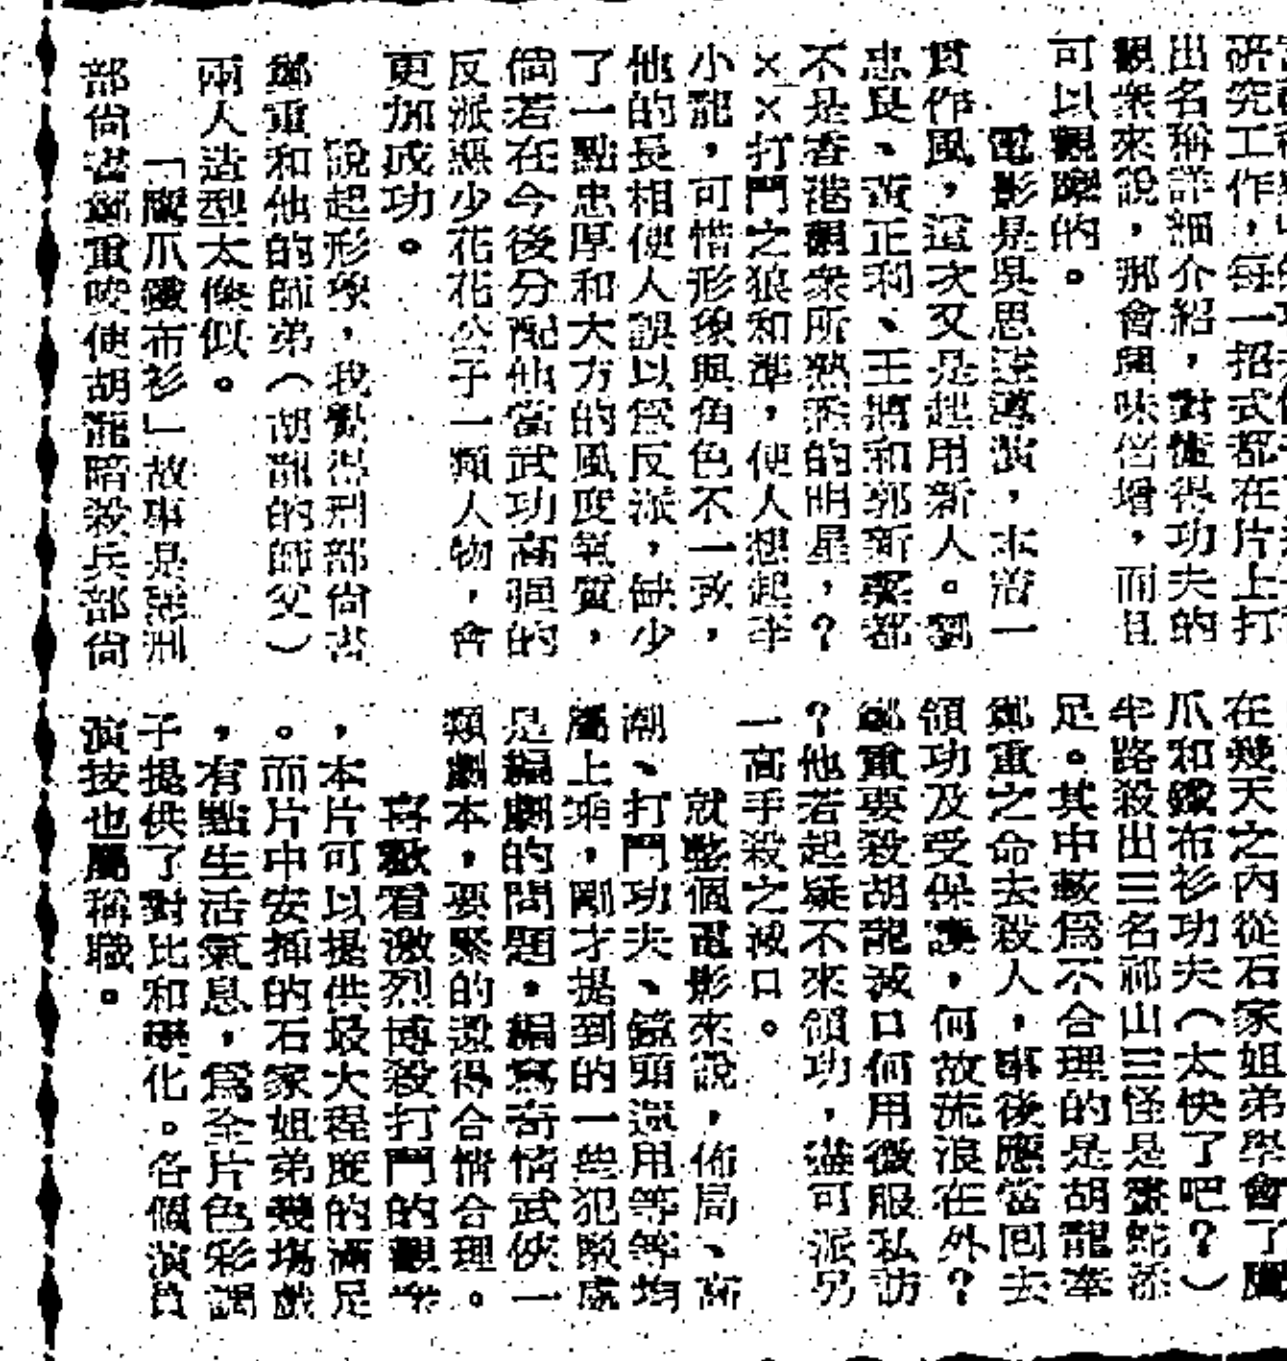 研究工作,每一招式都在片上打
出名稱詳細介紹,對懂得功夫的
觀衆來說,那會興味倍增,而且
可以觀摩的。
電影是吳思遠導演,本著一
貫作風,這次又是起用新人。劉
忠良、黃正利、王將和郭新蘂都
不是香港觀衆所熟悉的明星,?
××打鬥之狠和準,使人想起李
小龍,可惜形象與角色不一致,
他的長相使人誤以爲反派,缺少
了一點忠厚和大方的風度氣質,
倘若在今後分配他當武功高强的
反派惡少花花公子一類人物,會
更加成功。
說起形象,我覺得刑部尚書
鄭重和他的師弟(胡龍的師父)
兩人造型太像似。
「鷹爪鐵布衫」故事是惡刑
部尚書鄭重唆使胡龍暗殺兵部尚
在幾天之內從石家姐弟學會了鷹
爪和鐵布衫功夫(太快了吧?)
半路殺出三名祁山三怪是畫蛇添
足。其中較爲不合理的是胡龍奉
鄭重之命去殺人,事後應當回去
領功及受保護,何故流浪在外?
鄭重要殺胡龍滅口何用微服私訪
?他若起疑不來領功,儘可派另
一高手殺之滅口。
就整個電影來說,佈局、高
潮、打鬥功夫、鏡頭運用等等均
屬上乘,剛才提到的一些犯駁處
是編劇的問題,編寫奇情武俠一
類劇本,要緊的還得合情合理。
喜歡看激烈博殺打鬥的觀衆
,本片可以提供最大程度的滿足
。而片中安插的石家姐弟幾塲戲
,有點生活氣息,爲全片色彩調
子提供了對比和變化。各個演員
演技也屬稱職。